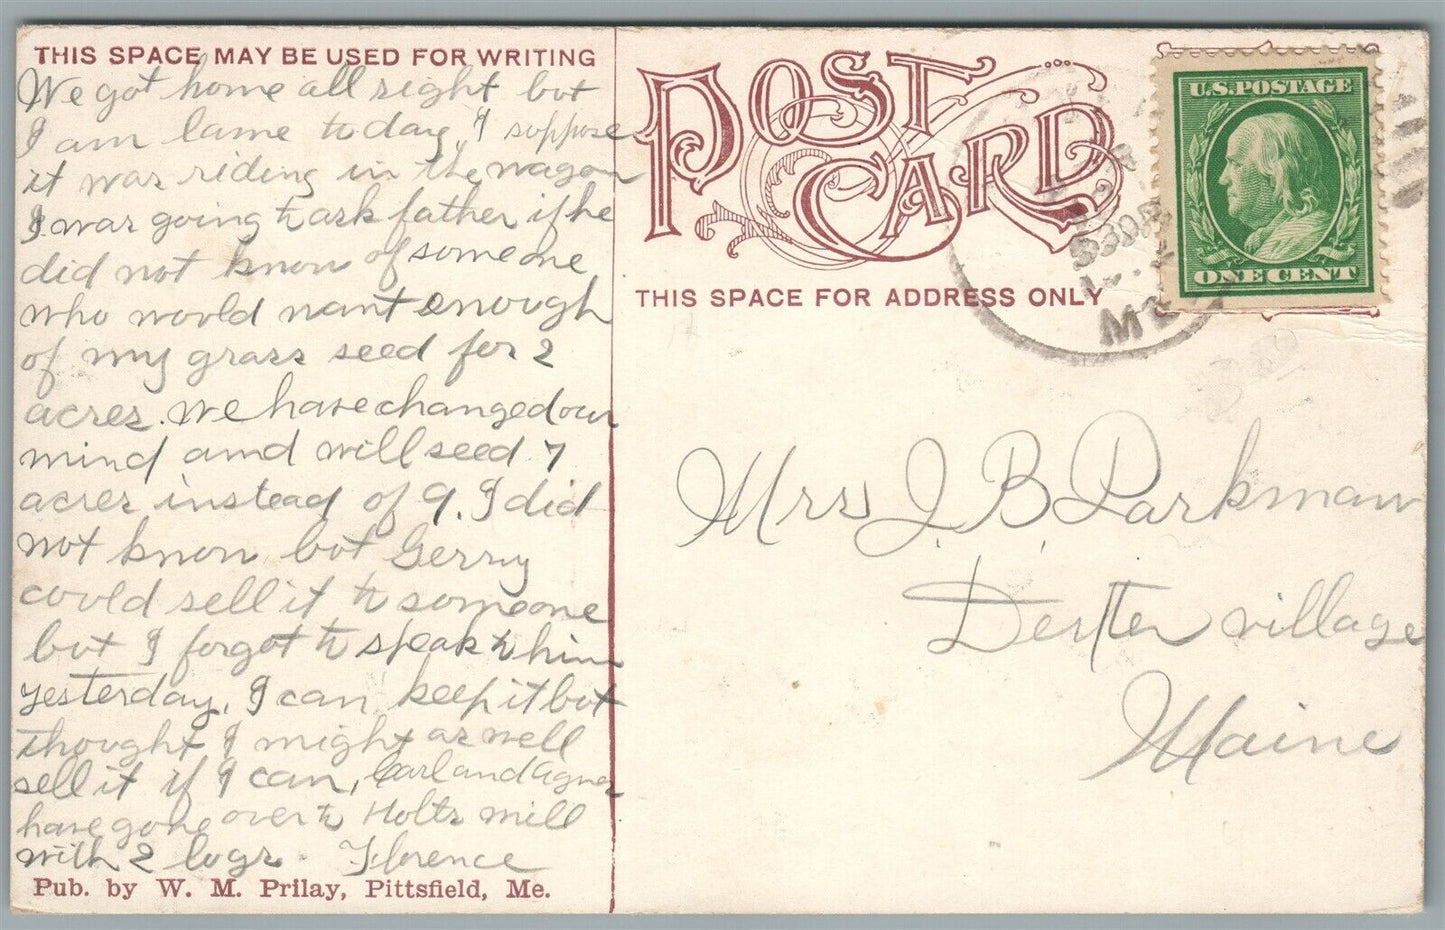 THIS SPACE MAY BE USED FOR WRITING
We got home all right but
I am lame today, I suppose
it was riding in the wagon
I was going to ask father if he
did not know of someone
who would want enough
of my grass seed for 2
acres. We have changed our
mind and will seed 7
acres instead of 9. I did
not know but Gerry
could sell it to someone
but I forgot to speak to him
yesterday, I can keep it but
thought I might as well
sell it if I can, Carl and Agnes
have gone over to Holts mill
with 2 logs. Florence
Pub. by W. M. Prilay, Pittsfield, Me.
POST CARD
THIS SPACE FOR ADDRESS ONLY
U.S. POSTAGE
ONE CENT
ME
Mrs J. B. Parkman
Dexter village
Maine